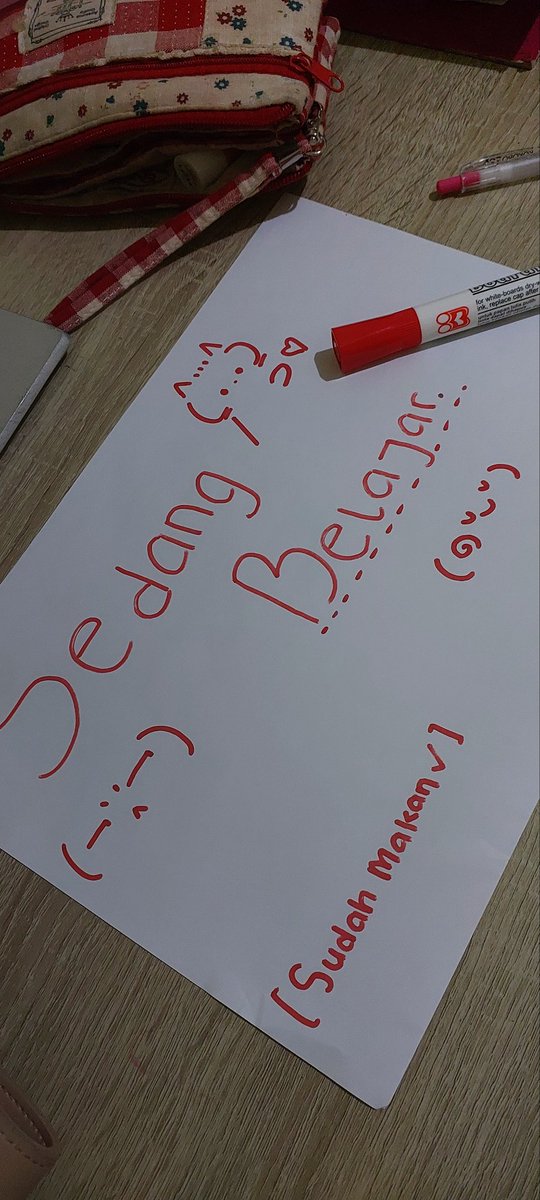 Sedang
Belajar..
[Sudah Makan✓]
for white-boards dry-w
ink, replace cap after